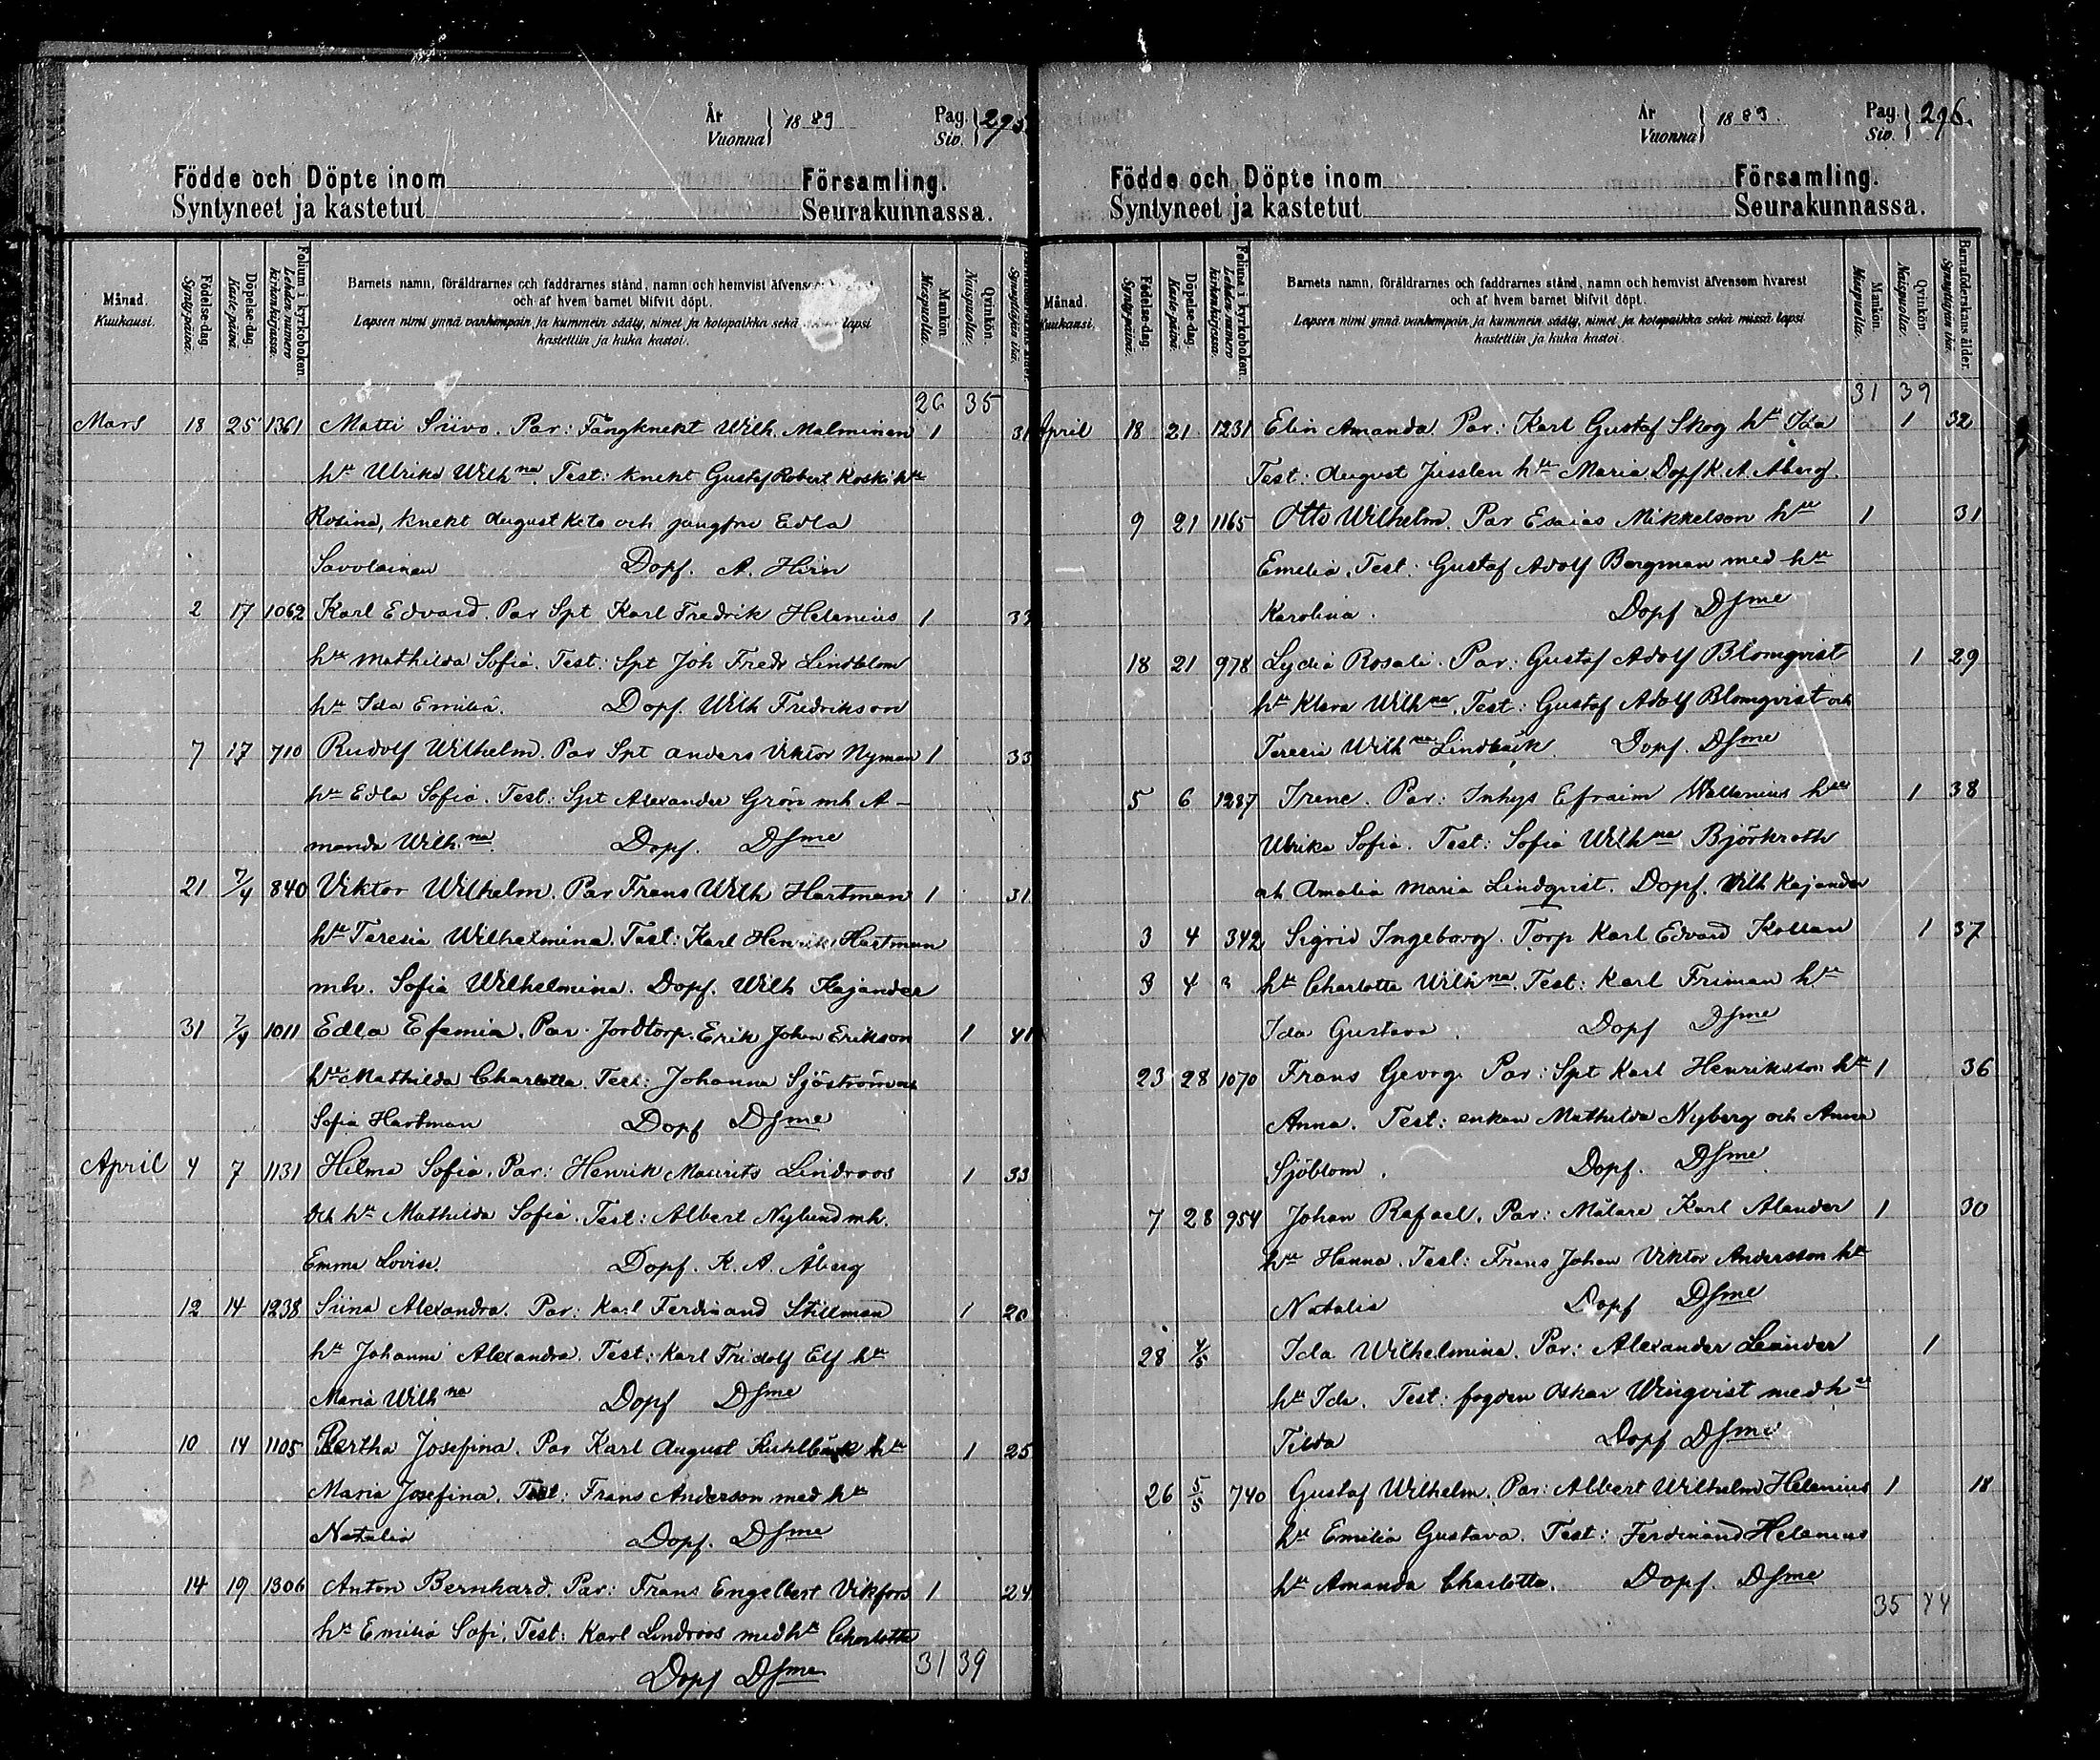 År
Vuonna
1889
Pag.
Siv.
295
Födde och Döpte inom Församling.
Syntyneet ja kastetut Seurakunnassa.
Månad.
Kuukausi.
Födelse-dag.
Synty-päivä.
Döpelse-dag.
Kaste-päivä.
Folium i kyrkoboken.
Lehden numero kirkonkirjassa.
Barnets namn, föräldrarnes och faddrarnes stånd, namn och hemvist äfvensom
och af hvem barnet blifvit döpt.
Lapsen nimi ynnä vanhempain ja kummein sääty, nimet ja kotopaikka sekä lapsi
kastettiin ja kuka kastoi.
Mankön.
Miespuolia.
Qvinkön.
Naispuolia.
26 35
Mars 18 25 1361 Matti Siivo. Par: Fångknekt Wilh. Malminen 1 31
hu Ulrika Wilhna. Test: knekt Gustaf Robert Koski hu
Rosina, knekt August Keto och jungfru Edla
Savolainen Dopf. A. Hirn
2 17 1062 Karl Edvard. Par Spt Karl Fredrik Helenius 1 33
hu Mathilda Sofia. Test: Spt Joh Fredr Lindblom
hu Ida Emilia. Dopf. Wilh Fredrikson
7 17 710 Rudolf Wilhelm. Par Spt Anders Viktor Nyman 1 33
hu Edla Sofia. Test: Spt Alexander Grön mh A-
manda Wilh.na Dopf. DSme
21 7/4 840 Viktor Wilhelm. Par Frans Wilh Hartman 1 31
hu Teresia Wilhelmina. Test: Karl Henrik Hartman
mh. Sofia Wilhelmina. Dopf. Wilh Kajander
31 7/4 1011 Edla Efemia. Par Jordtorp. Erik Johan Erikson 1 41
hu Mathilda Charlotta. Test: Johanna Sjöström och
Sofia Hartman Dopf DSme
April 4 7 1131 Hilma Sofia. Par: Henrik Maurits Lindroos 1 33
och hu Mathilda Sofia. Test: Albert Nylund mh.
Emma Lovisa. Dopf. K. A. Åberg
12 14 1238 Siina Alexandra. Par: Karl Ferdinand Stillman 1 20
hu Johanna Alexandra. Test: Karl Fridolf Elf hu
Maria Wilhna Dopf DSme
10 14 1105 Bertha Josefina. Par Karl August Kuhlbäck hu 1 25
Maria Josefina. Test: Frans Anderson med hu
Natalia Dopf. DSme
14 19 1306 Anton Bernhard. Par: Frans Engelbert Vikfors 1 24
hu Emilia Sofi. Test: Karl Lindroos med hu Charlotta
Dopf DSme 31 39
År
Vuonna
1889.
Pag.
Siv.
296.
Födde och Döpte inom Församling.
Syntyneet ja kastetut Seurakunnassa.
Månad.
Kuukausi.
Födelse-dag.
Synty-päivä.
Döpelse-dag.
Kaste-päivä.
Folium i kyrkoboken.
Lehden numero kirkonkirjassa.
Barnets namn, föräldrarnes och faddrarnes stånd, namn och hemvist äfvensom hvarest
och af hvem barnet blifvit döpt.
Lapsen nimi ynnä vanhempain ja kummein sääty, nimet ja kotopaikka sekä missä lapsi
kastettiin ja kuka kastoi.
Mankön.
Miespuolia.
Qvinkön
Naispuolia.
Barnaföderskans ålder.
Synnyttäjän ikä.
31 39
April 18 21 1231 Elin Amanda. Par: Karl Gustaf Skog hu Ida 1 32
Test: August Jusslen hu Maria. Dopf K. A. Åberg
9 21 1165 Otto Wilhelm. Par Esaias Mikkelson hu 1 31
Emelia. Test: Gustaf Adolf Bergman med hu
Karolina. Dopf DSme
18 21 978 Lydia Rosali. Par: Gustaf Adolf Blomqvist 1 29
hu Klara Wilhna. Test: Gustaf Adolf Blomqvist och
Teresia Wilhna Lindbäck. Dopf. DSme
5 6 1287 Irene. Par: Inhys Efraim Wallenius hu 1 38
Ulrika Sofia. Test: Sofia Wilhna Björkroth
och Amalia Maria Lindqvist. Dopf. Wilh Kajander
3 4 342 Sigrid Ingeborg. Torp Karl Edvard Kallan 1 37
3 4 3 hu Charlotta Wilhna. Test: Karl Friman hu
Ida Gustava. Dopf DSme
23 28 1070 Frans Georg. Par: Spt Karl Henriksson hu 1 36
Anna. Test: enkan Mathilda Nyberg och Anna
Sjöblom. Dopf. DSme
7 28 954 Johan Rafael. Par: Målare Karl Alander 1 30
hu Hanna. Test: Frans Johan Viktor Andersson hu
Natalia Dopf DSme
28 4/5 Ida Wilhelmina. Par: Alexander Leander 1
hu Ida. Test: fogden Oskar Winqvist med hu
Tilda Dopf DSme
26 5/5 740 Gustaf Wilhelm. Par: Albert Wilhelm Helenius 1 18
hu Emilia Gustava. Test: Ferdinand Helenius
hu Amanda Charlotta. Dopf. DSme
35 44